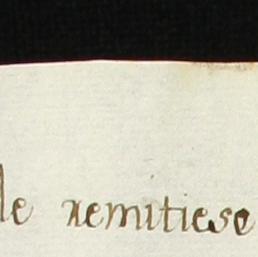 le remitiese